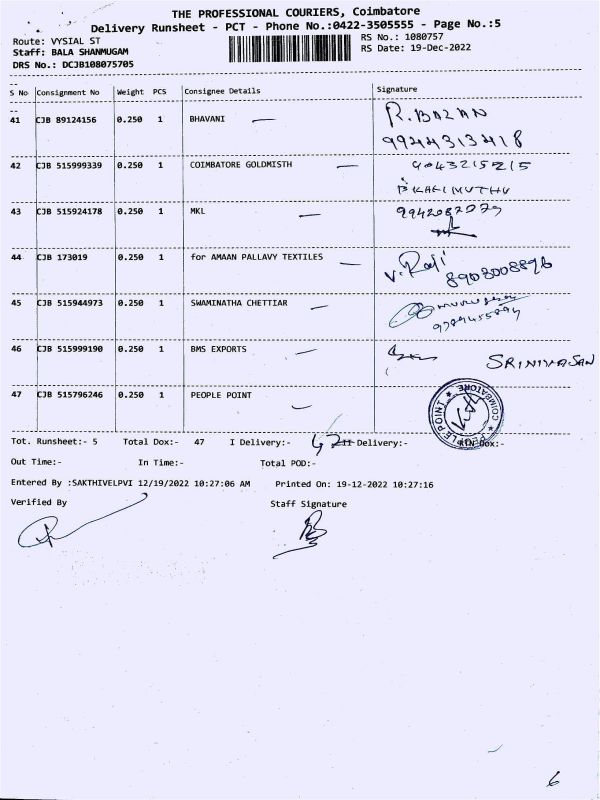 THE PROFESSIONAL COURIERS, Coimbatore
Delivery Runsheet - PCT - Phone No.:0422-3505555 - Page No.:5
Route: VYSIAL ST
RS No.: 1080757
Staff: BALA SHANMUGAM
RS Date: 19-Dec-2022
DRS No.: DCJB108075705
S No Consignment No Weight PCS Consignee Details Signature
41 CJB 89124156 0.250 1 BHAVANI R.BAZAN
9944313418
42 CJB 515999339 0.250 1 COIMBATORE GOLDMISTH 9043215215
43 CJB 515924178 0.250 1 MKL
44 CJB 173019 0.250 1 for AMAAN PALLAVY TEXTILES V. Raji
8903008896
45 CJB 515944973 0.250 1 SWAMINATHA CHETTIAR
46 CJB 515999190 0.250 1 BMS EXPORTS SRINIVASAN
47 CJB 515796246 0.250 1 PEOPLE POINT PEOPLE POINT COIMBATORE
Tot. Runsheet:- 5 Total Dox:- 47 I Delivery:- II Delivery:- RTN Dox:-
Out Time:- In Time:- Total POD:-
Entered By :SAKTHIVELPVI 12/19/2022 10:27:06 AM Printed On: 19-12-2022 10:27:16
Verified By Staff Signature
6